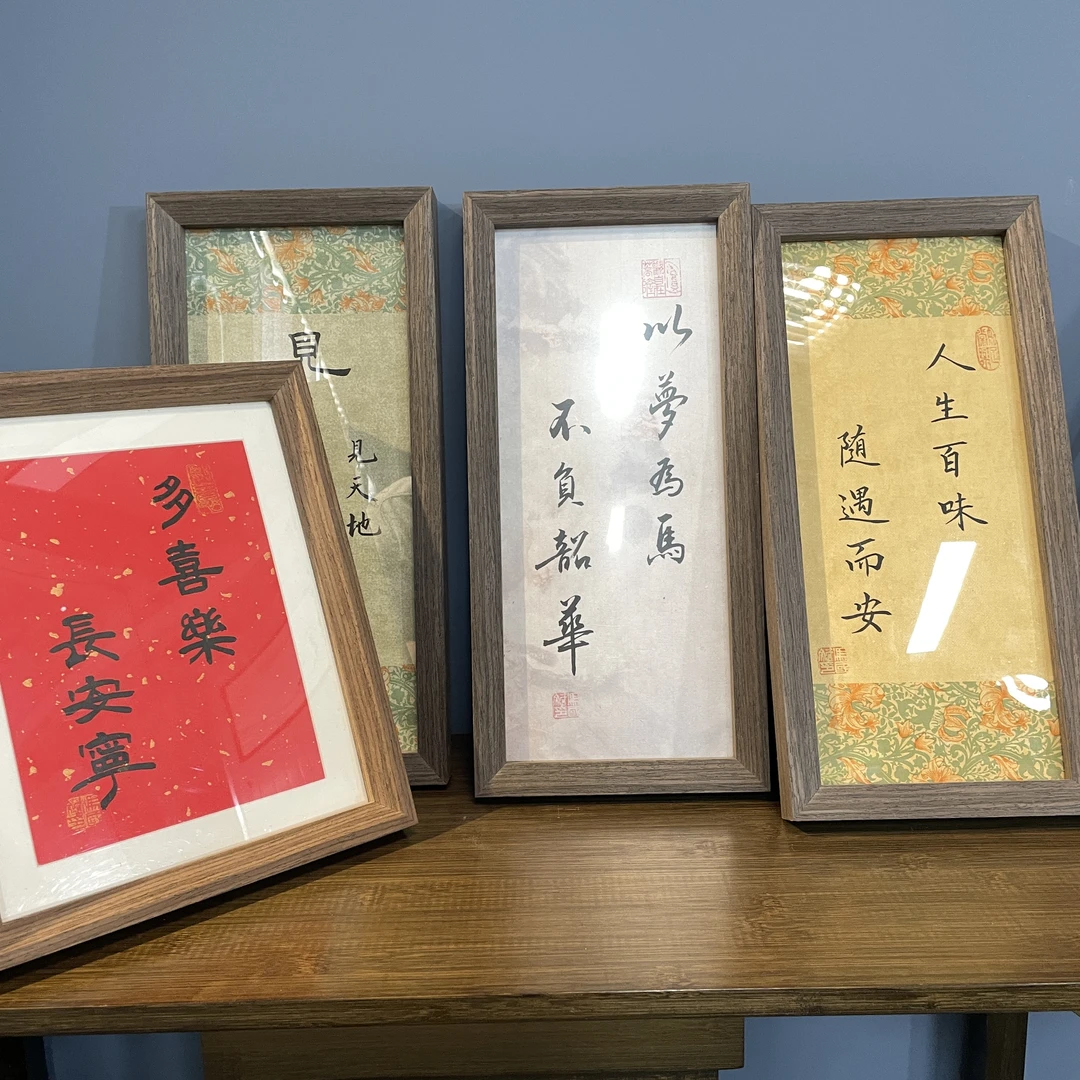 多喜樂
長安寧
見
見天地
以夢為馬
不負韶華
人生百味
随遇而安